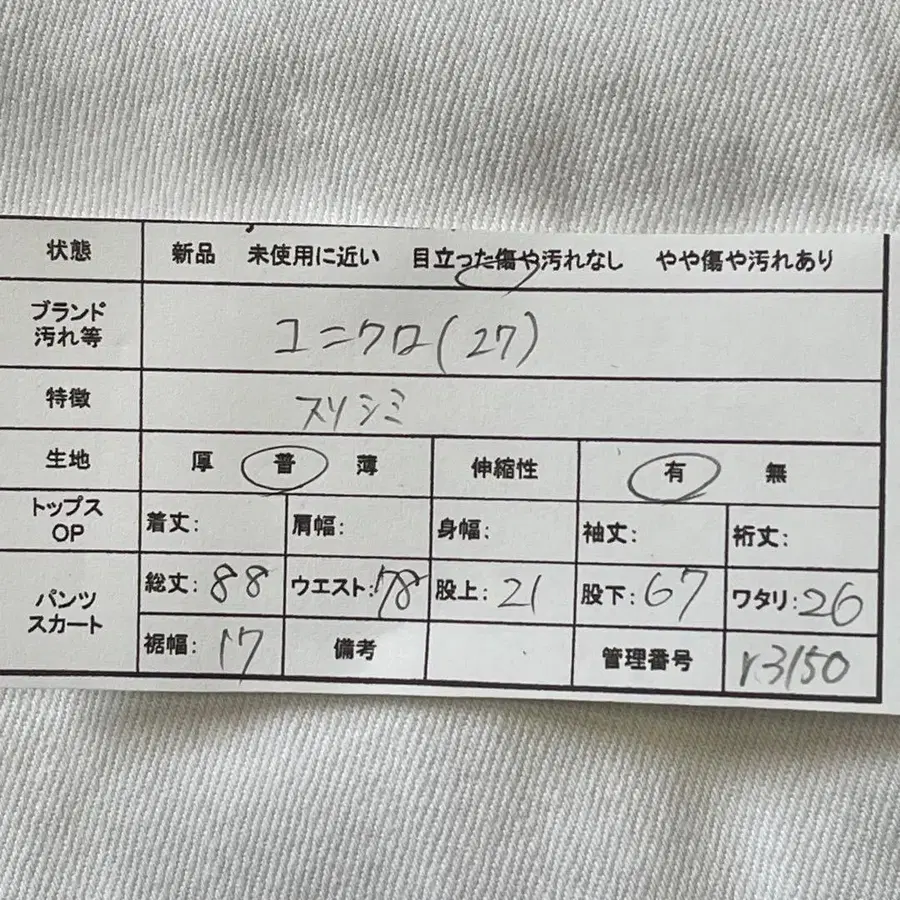 状態 新品 未使用に近い 目立った傷や汚れなし やや傷や汚れあり
ブランド
汚れ等 ユニクロ(27)
特徴 スリシミ
生地 厚 普 薄 伸縮性 有 無
トップス
OP 着丈: 肩幅: 身幅: 袖丈: 裄丈:
パンツ
スカート 総丈:88 ウエスト:78 股上:21 股下:67 ワタリ:26
裾幅:17 備考 管理番号 r3150